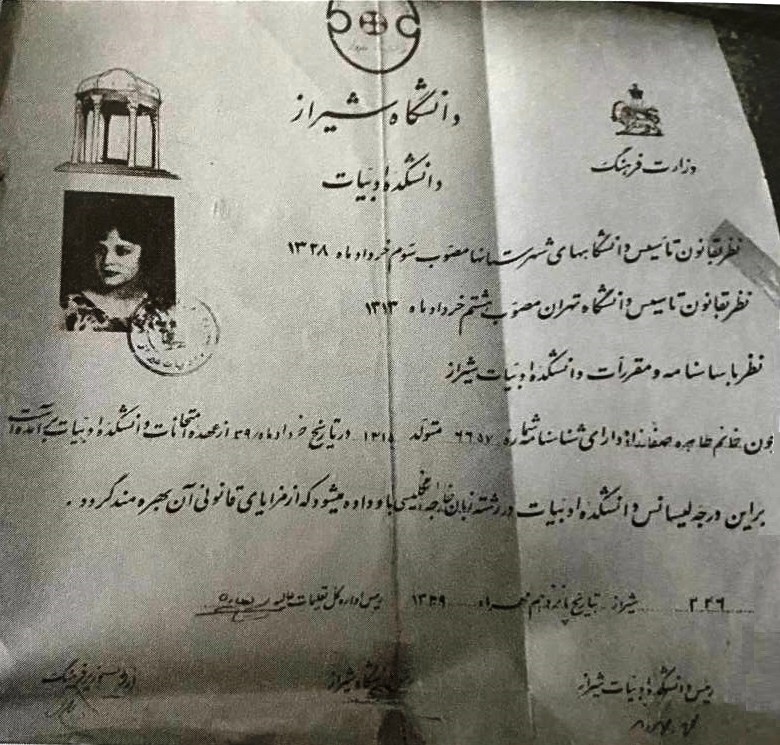 دانشگاه شیراز
وزارت فرهنگ
دانشکدهٔ ادبیات
نظر بقانون تأسیس دانشگاههای شهرستانها مصوب سوم خرداد ماه ۱۳۲۸
نظر بقانون تأسیس دانشگاه تهران مصوب هشتم خرداد ماه ۱۳۱۳
نظر باساسنامه و مقررات دانشکدهٔ ادبیات شیراز
چون خانم طاهره صفارزاده دارای شناسنامه شماره ۶۶۵۷ متولد ۱۳۱۵ در تاریخ خرداد ماه ۳۹ از عهده امتحانات دانشکدهٔ ادبیات برآمده است
بنابراین درجه لیسانس دانشکدهٔ ادبیات در رشته زبان خارجه انگلیسی باو داده میشود که از مزایای قانونی آن بهره مند گردد .
۳۴۶ شیراز بتاریخ پانزدهم مهر ماه ۱۳۳۹ رئیس اداره کل تعلیمات عالیه
رئیس دانشکدهٔ ادبیات شیراز
دانشگاه شیراز
از طرف وزیر فرهنگ